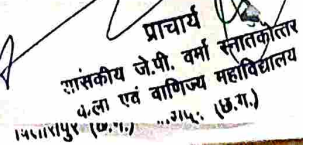 प्राचार्य
शासकीय जे.पी. वर्मा स्नातकोत्तर
कला एवं वाणिज्य महाविद्यालय
(छ.ग.)